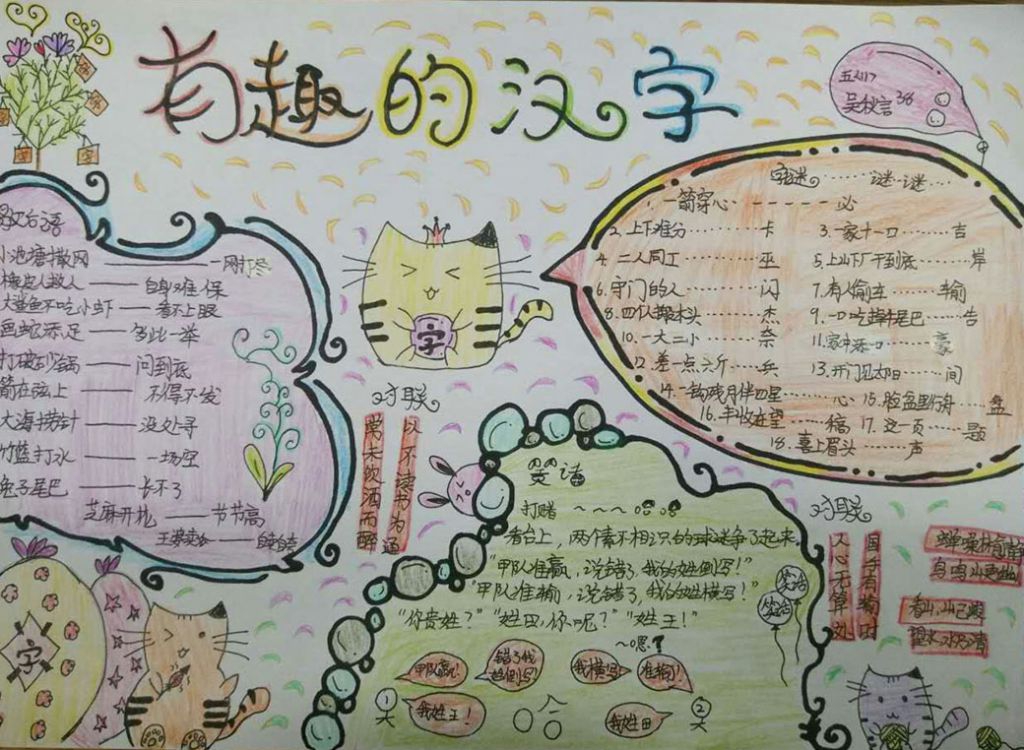 有趣的汉字
五(1)
吴秋言 38
歇后语
小池塘撒网———一网打尽
橡皮人救人———自身难保
大鲨鱼不吃小虾——看不上眼
画蛇添足———多此一举
打破砂锅———问到底
箭在弦上———不得不发
大海捞针———没处寻
竹篮打水———一场空
兔子尾巴———长不了
芝麻开花——节节高
字谜……谜一谜……
1. 一箭穿心------必
2. 上下难分……卡 3. 一家十一口……吉
4. 二人同工……巫 5. 上山下厂干到底……岸
6. 守门的人……闪 7. 有人偷车……输
8. 四个摆木头……杰 9. 一口吃掉牛尾巴……告
10. 一大二小……奈 11. 家中添一口……豪
12. 差一点六斤……兵 13. 开门见太阳……间
14. 一勾残月伴四星……心 15. 脸盆里行舟……盘
16. 丰收在望……稿 17. 这一页……题
18. 喜上眉头……声
字
对联
以不读书为通
常未饮酒而醉
笑话
打赌～～～
"看台上，两个素不相识的球迷争了起来
"甲队准赢，说错了，我的姓倒写！"
"甲队准输，说错了，我的姓横写！"
"你贵姓？""姓田，你呢？""姓王！"
～嘿！
甲队赢！
错了我姓倒写！
我横写
准输！
①
我姓王！
哈
我姓田
②
笑话
笑话
对联
国手有输时
人心无算处
蝉噪林愈静
鸟鸣山更幽
字